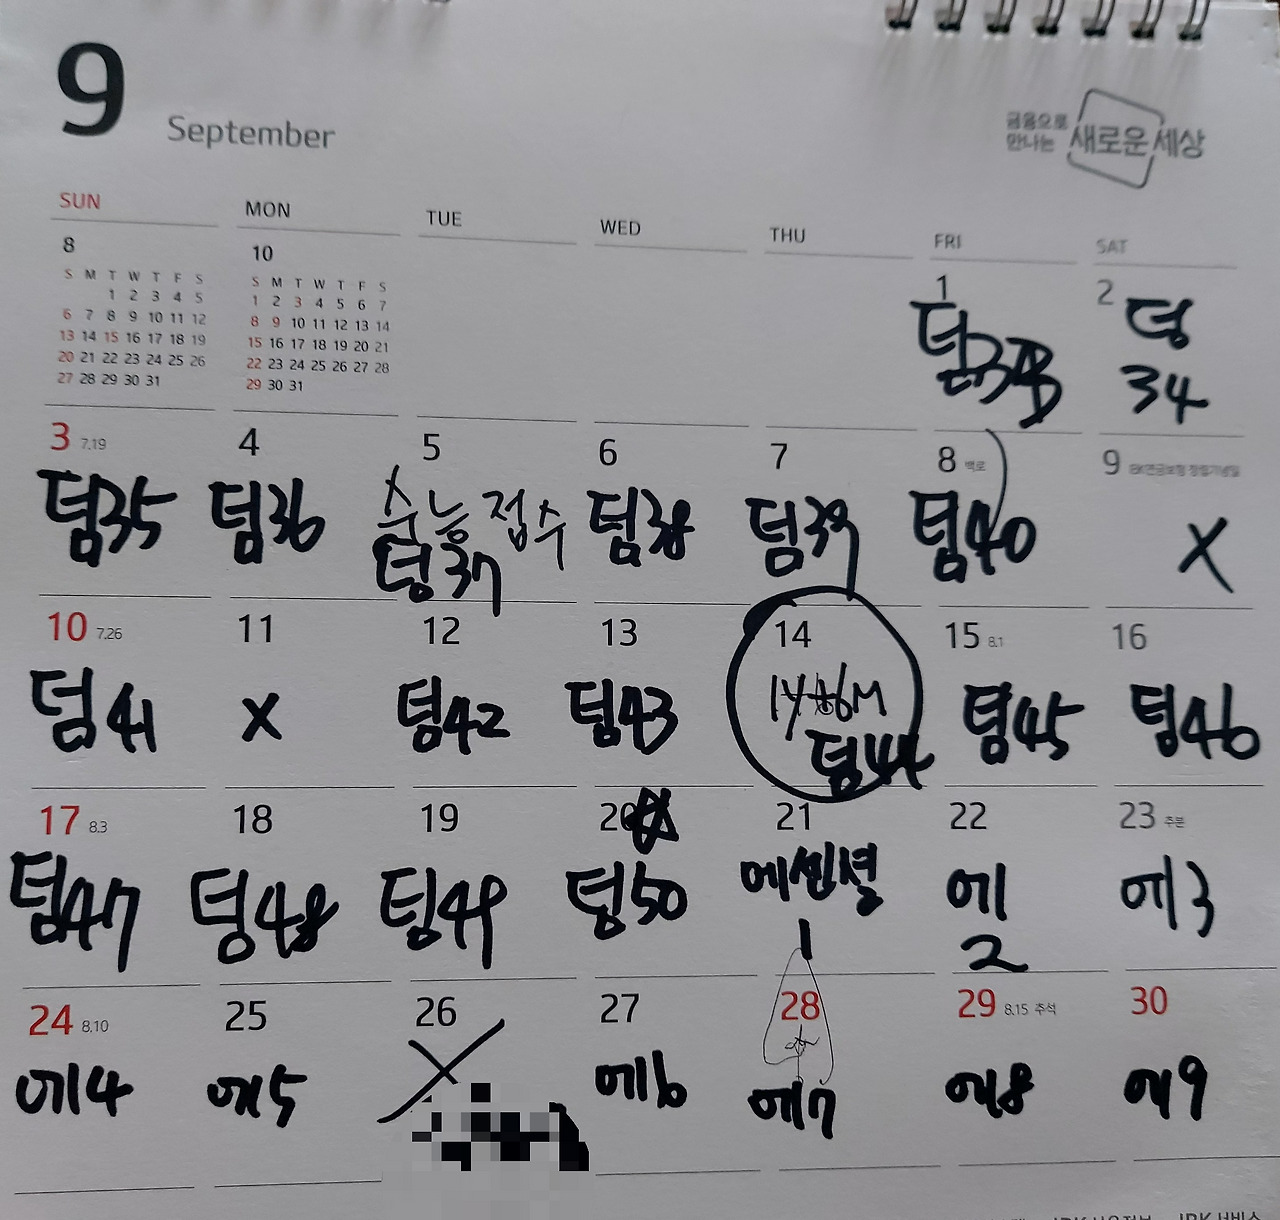 9
September
금융으로
만나는
새로운 세상
SUN MON TUE WED THU FRI SAT
8
S M T W T F S
1 2 3 4 5
6 7 8 9 10 11 12
13 14 15 16 17 18 19
20 21 22 23 24 25 26
27 28 29 30 31
10
S M T W T F S
1 2 3 4 5 6 7
8 9 10 11 12 13 14
15 16 17 18 19 20 21
22 23 24 25 26 27 28
29 30 31
1 2
덤 34
3 7.19 4 5 6 7 8 백로 9 IBK연금보험 창립기념일
덤35 덤36 수능 접수 덤38 덤39 덤40 X
덤37
10 7.26 11 12 13 14 15 8.1 16
덤41 X 덤42 덤43 덤44 덤45 덤46
17 8.3 18 19 20 21 22 23 추분
덤47 덤48 덤49 덤50 에센셜 에 에3
1 2
24 8.10 25 26 27 28 29 8.15 추석 30
에4 에5 X 에6 에7 에8 에9